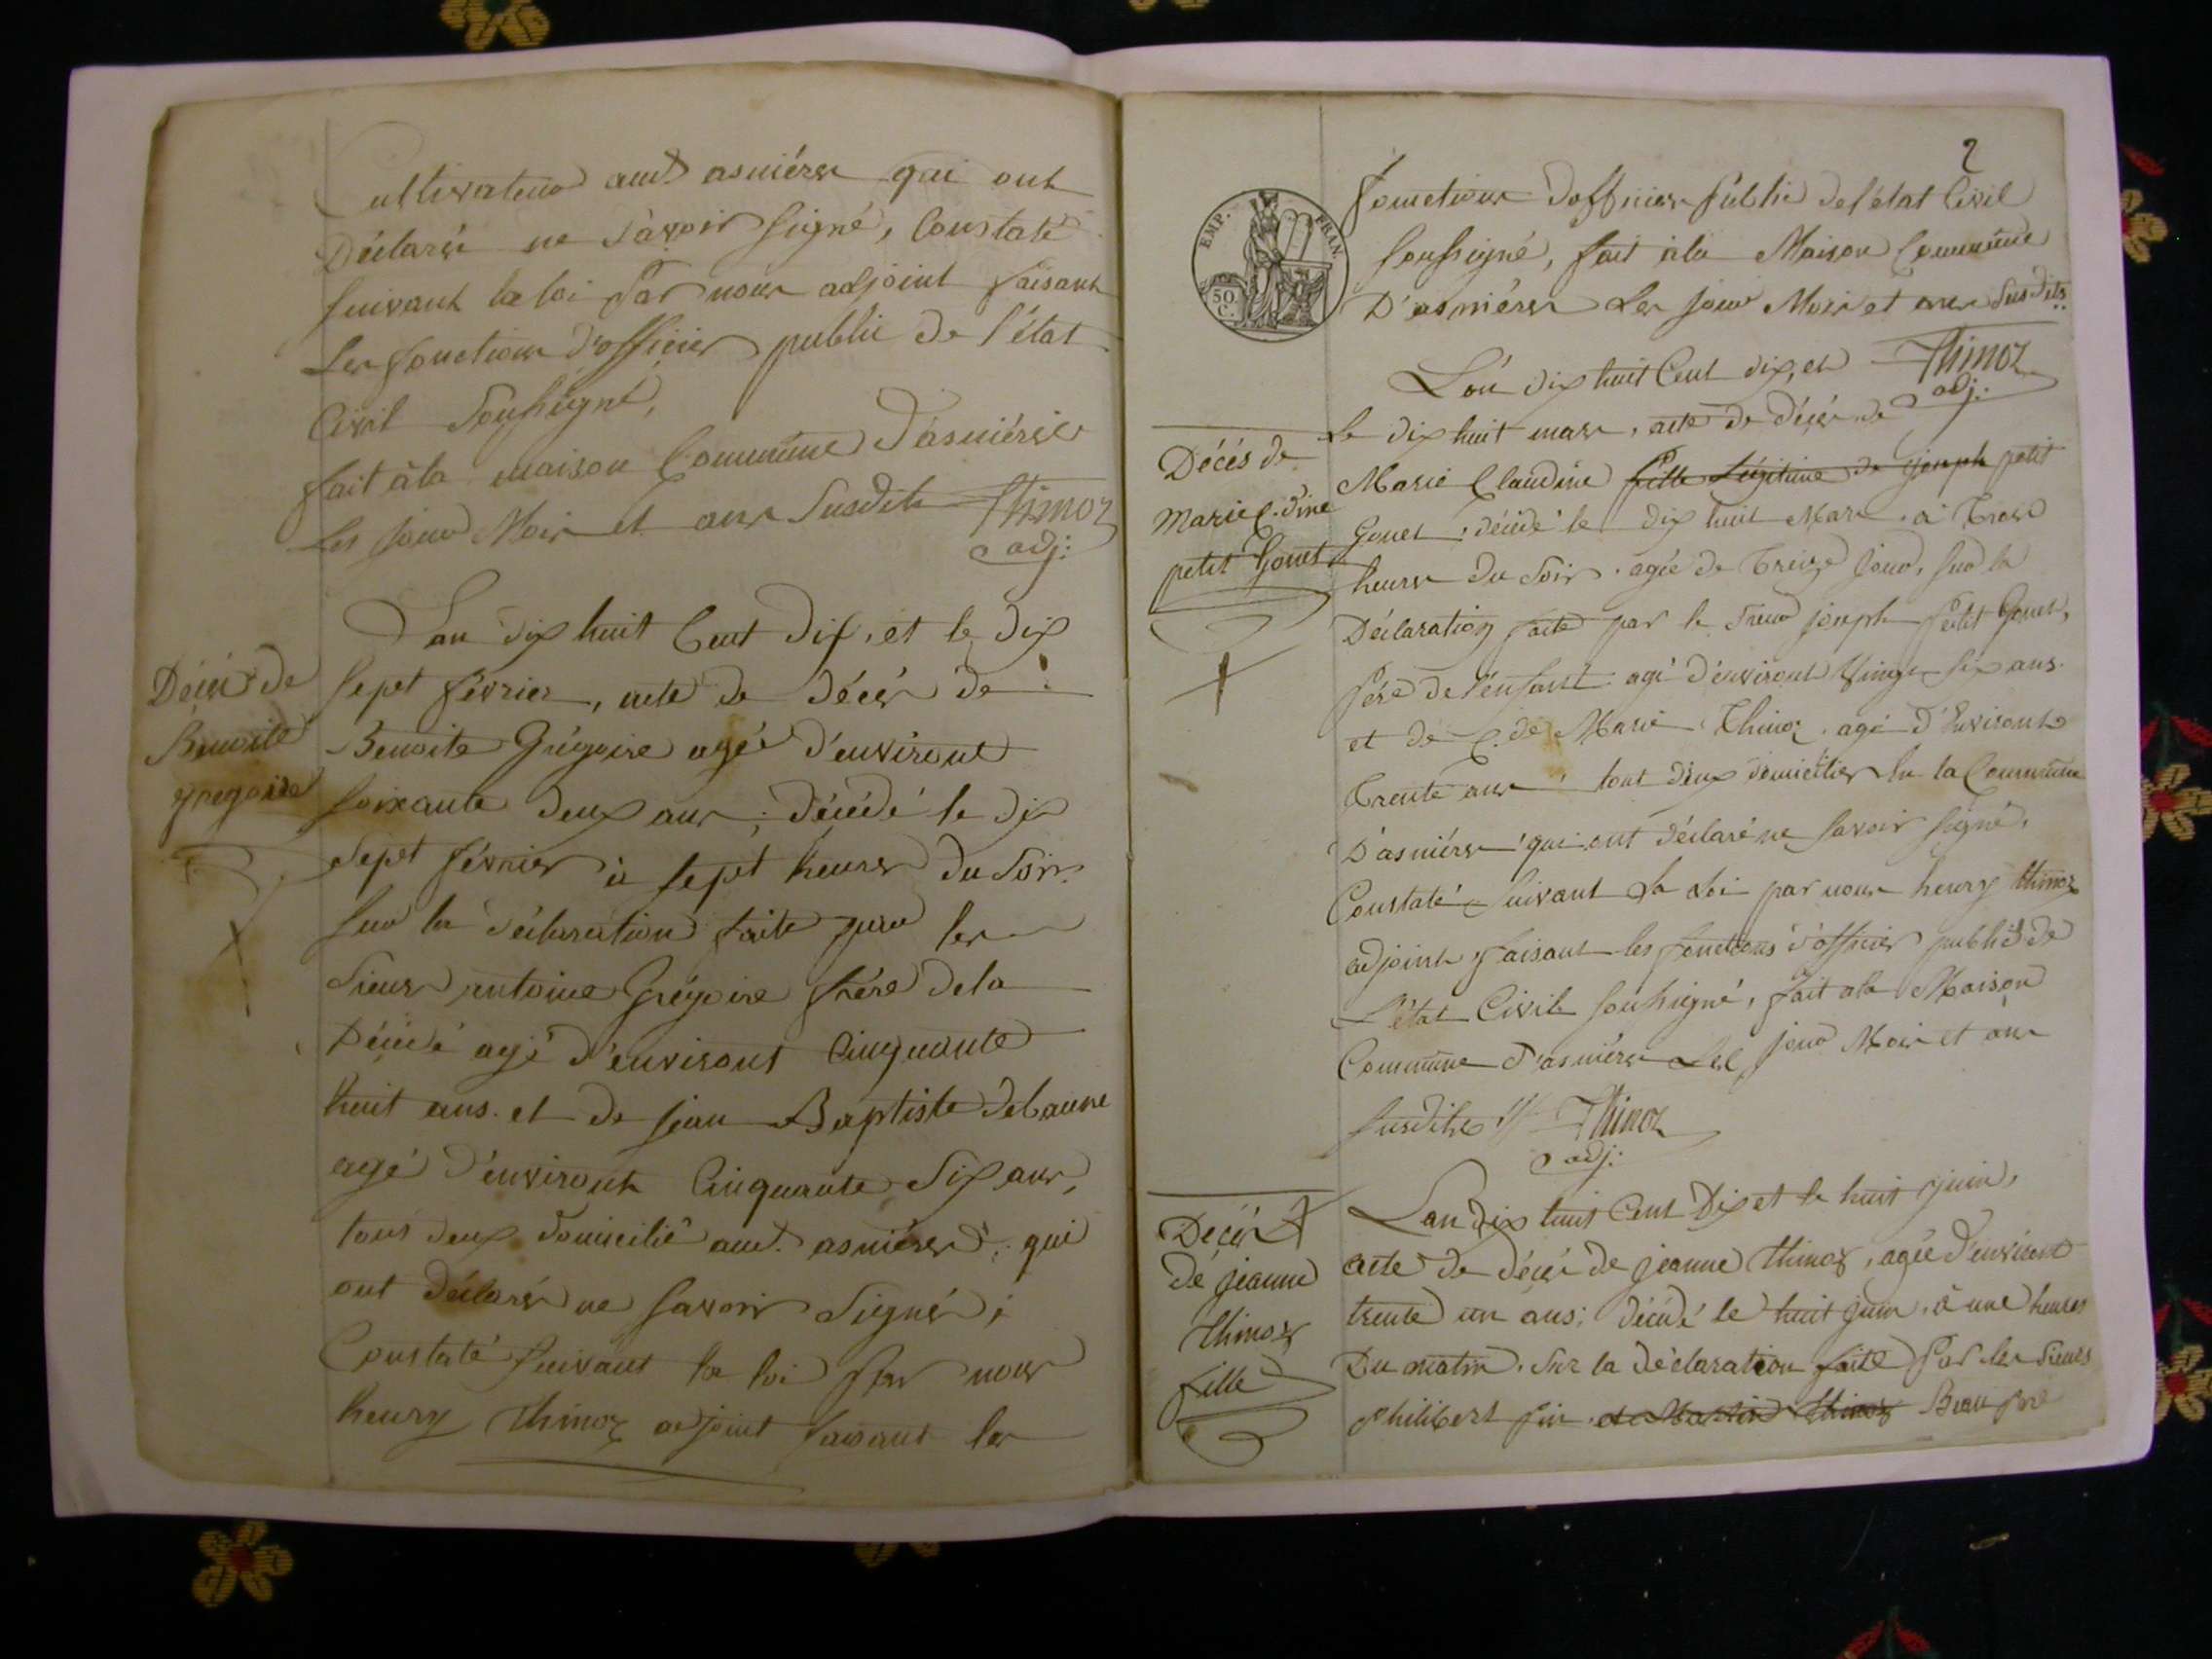 Cultivateur aud. asniéres qui ont
Déclaré ne savoir signé, Constaté
suivant la loi Par nous adjoint faisant
Les fonctions d'officier public de l'état
Civil Soussigné,
fait à la maison Commune D'asniéres
Les jour Mois et ans Susdits Thinoz
adj:
Décés de
Benoite
gregoire
L'an dix huit Cent dix, et le dix
sept février, acte de décés de
Benoite Grégoire agé d'environt
soixante deux ans, décédé le dix
sept février à sept heures du soir.
sur la déclaration faite par les
sieurs antoine Grégoire frére de la
Décédé agé d'environt Cinquante
huit ans. et de jean Baptiste debaune
agé d'environt Cinquante six ans,
tous deux domicilié aud. asniéres, qui
ont déclaré ne savoir signé;
Constaté suivant la loi par nous
henry Thinoz adjoint faisant les
2
EMP. FRAN.
50 C.
fonctions d'officier Public de l'état Civil
soussigné, fait à la Maison Commune
D'asniéres Les jour Mois et ans susdits.
Thinoz
adj:
Décés de
Marie C.dine
petit Gonet
L'an dix huit Cent dix, et
Le dix huit mars, acte de décés de
Marie Claudine fille Légitime de joseph petit
Gonet, décédé le dix huit Mars à Trois
heures du soir. agée de Treize jour, sur la
Déclaration faite par le sieur joseph Petit Gonet,
Pére de l'enfant agé d'environt Vingt six ans.
et de C.de Marie Thinoz. agé d'Environt
Trente ans tout deux domicilies En la Commune
D'asniéres qui ont déclaré ne savoir signé.
Constaté suivant La Loi par nous henry thinoz
adjoint, faisant les fonctions d'officier public de
L'état Civil soussigné, fait à la Maison
Commune d'asniéres Les jour Mois et ans
susdits Thinoz
adj:
Décés
de jeanne
thinoz
fille
L'an dix huit Cent Dix et le huit juin,
acte de décés de jeanne thinoz, agée d'environt
trente un ans; décédé le huit juin, à une heures
Du matin. Sur la déclaration faite Par les sieurs
philibert fin et Martin thinoz Beau pére